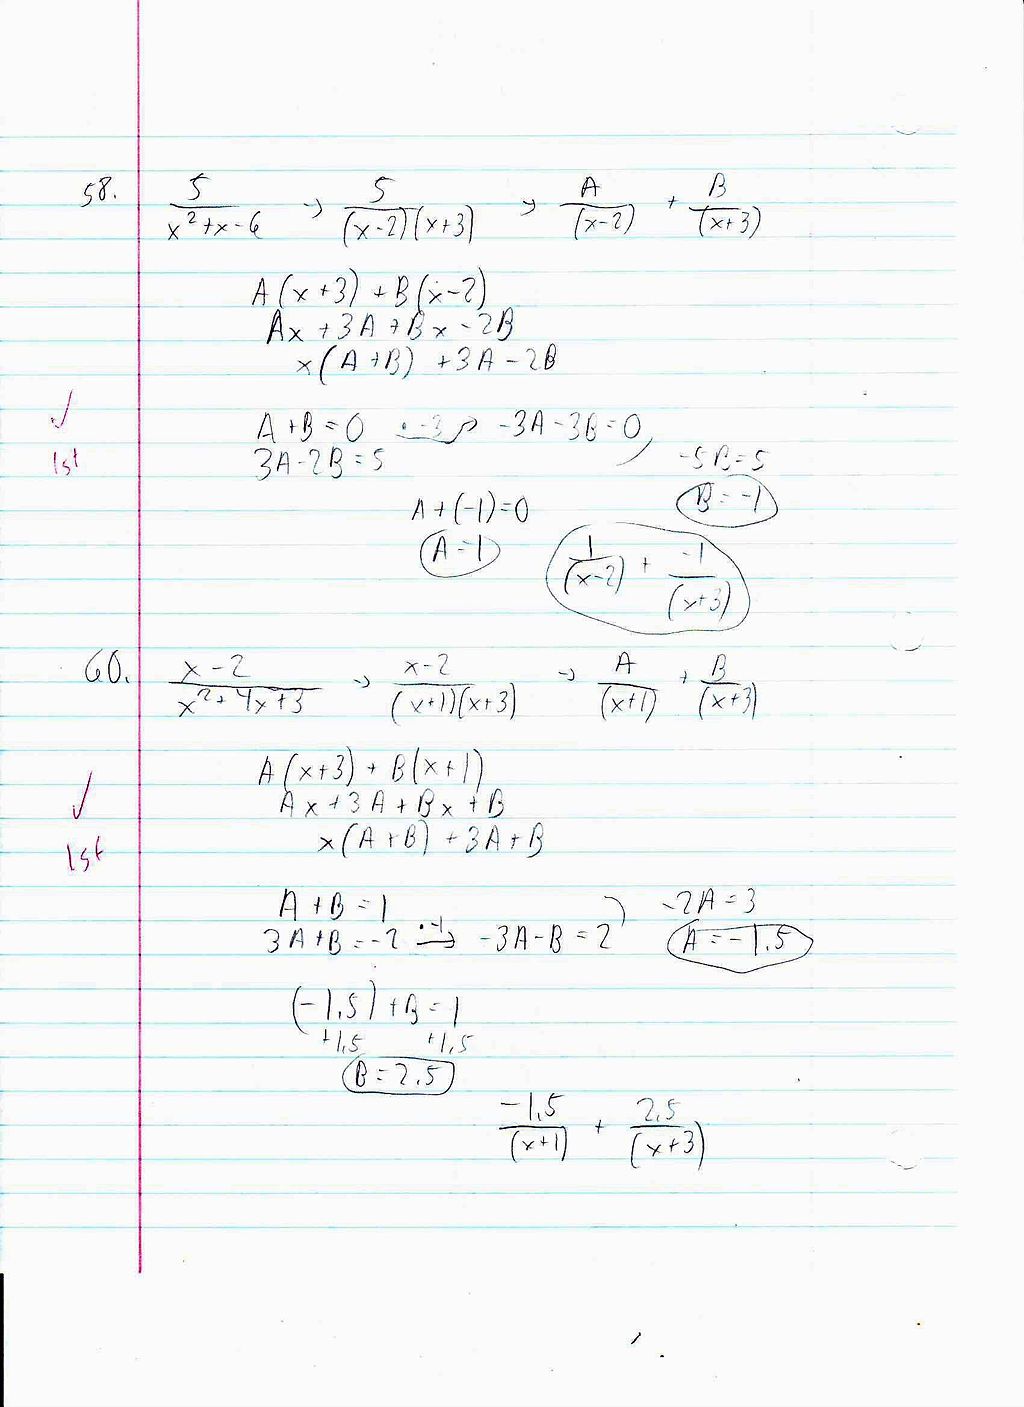 58. 5/(x²+x-6) → 5/((x-2)(x+3)) → A/(x-2) + B/(x+3)
A(x+3) + B(x-2)
Ax + 3A + Bx - 2B
x(A+B) + 3A - 2B
✓ A+B=0 · -3 → -3A-3B=0
1st 3A-2B=5 -5B=5
A+(-1)=0 B=-1
A=1 1/(x-2) + -1/(x+3)
60. (x-2)/(x²+4x+3) → (x-2)/((x+1)(x+3)) → A/(x+1) + B/(x+3)
A(x+3) + B(x+1)
✓ Ax+3A+Bx+B
1st x(A+B)+3A+B
A+B=1 -2A=3
3A+B=-2 ·-1 → -3A-B=2 A=-1.5
(-1.5)+B=1
+1.5 +1.5
B=2.5
-1.5/(x+1) + 2.5/(x+3)